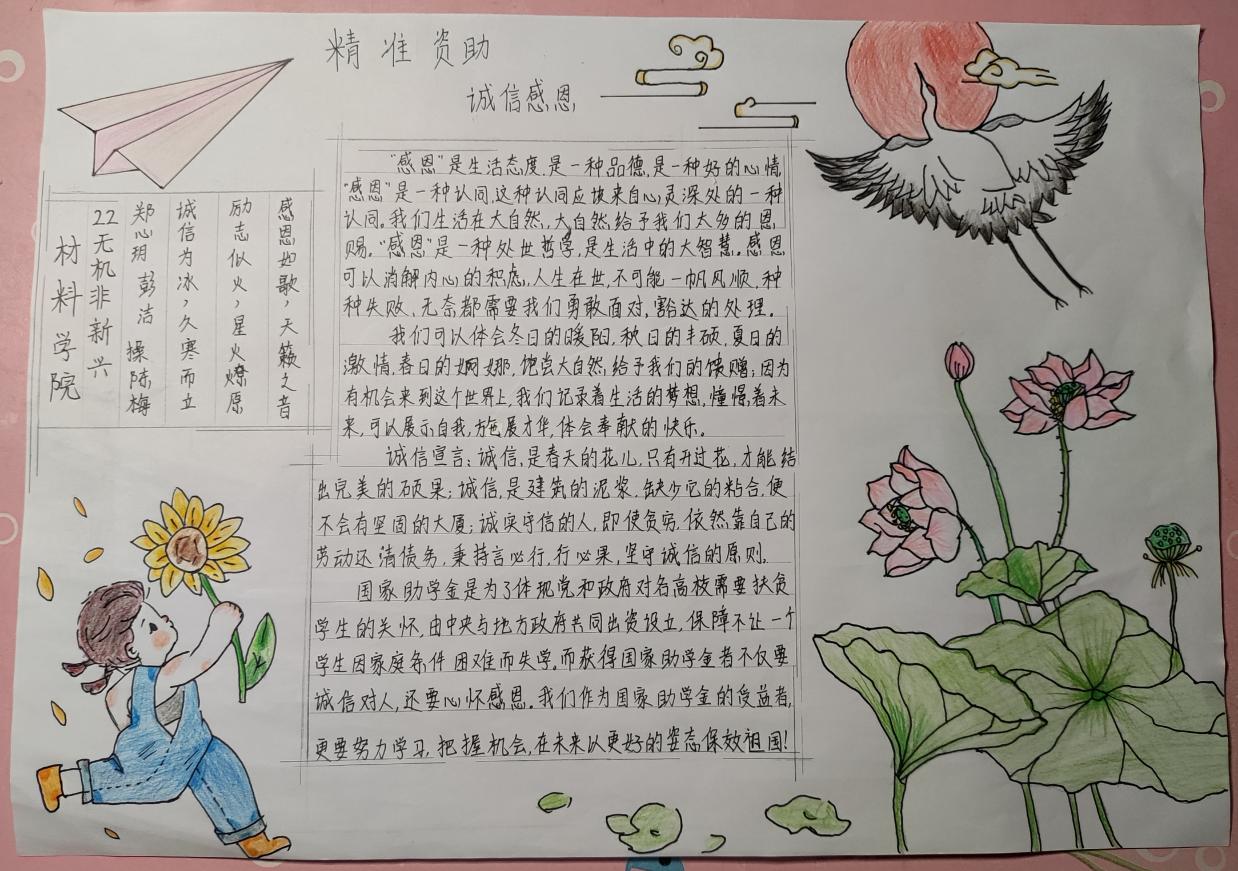 精准资助
诚信感恩
感恩如歌，天籁之音
励志似火，星火燎原
诚信为冰，久寒而立
郑心玥 彭洁 操陈梅
22无机非新兴
材料学院
“感恩”是生活态度，是一种品德，是一种好的心情，
“感恩”是一种认同，这种认同应该来自心灵深处的一种
认同。我们生活在大自然，大自然给予我们太多的恩
赐。“感恩”是一种处世哲学，是生活中的大智慧。感恩
可以消解内心的积虑，人生在世，不可能一帆风顺，种
种失败、无奈都需要我们勇敢面对，豁达的处理。
我们可以体会冬日的暖阳，秋日的丰硕，夏日的
激情，春日的婀娜，饱尝大自然给予我们的馈赠；因为
有机会来到这个世界上，我们记录着生活的梦想，憧憬着未
来，可以展示自我，施展才华，体会奉献的快乐。
诚信宣言：诚信，是春天的花儿，只有开过花，才能结
出完美的硕果；诚信，是建筑的泥浆，缺少它的粘合，便
不会有坚固的大厦；诚实守信的人，即使贫穷，依然靠自己的
劳动还清债务，秉持言必行，行必果，坚守诚信的原则。
国家助学金是为了体现党和政府对各高校需要扶贫
学生的关怀，由中央与地方政府共同出资设立，保障不让一个
学生因家庭条件困难而失学。而获得国家助学金者不仅要
诚信对人，还要心怀感恩。我们作为国家助学金的受益者，
更要努力学习，把握机会，在未来以更好的姿态保效祖国！